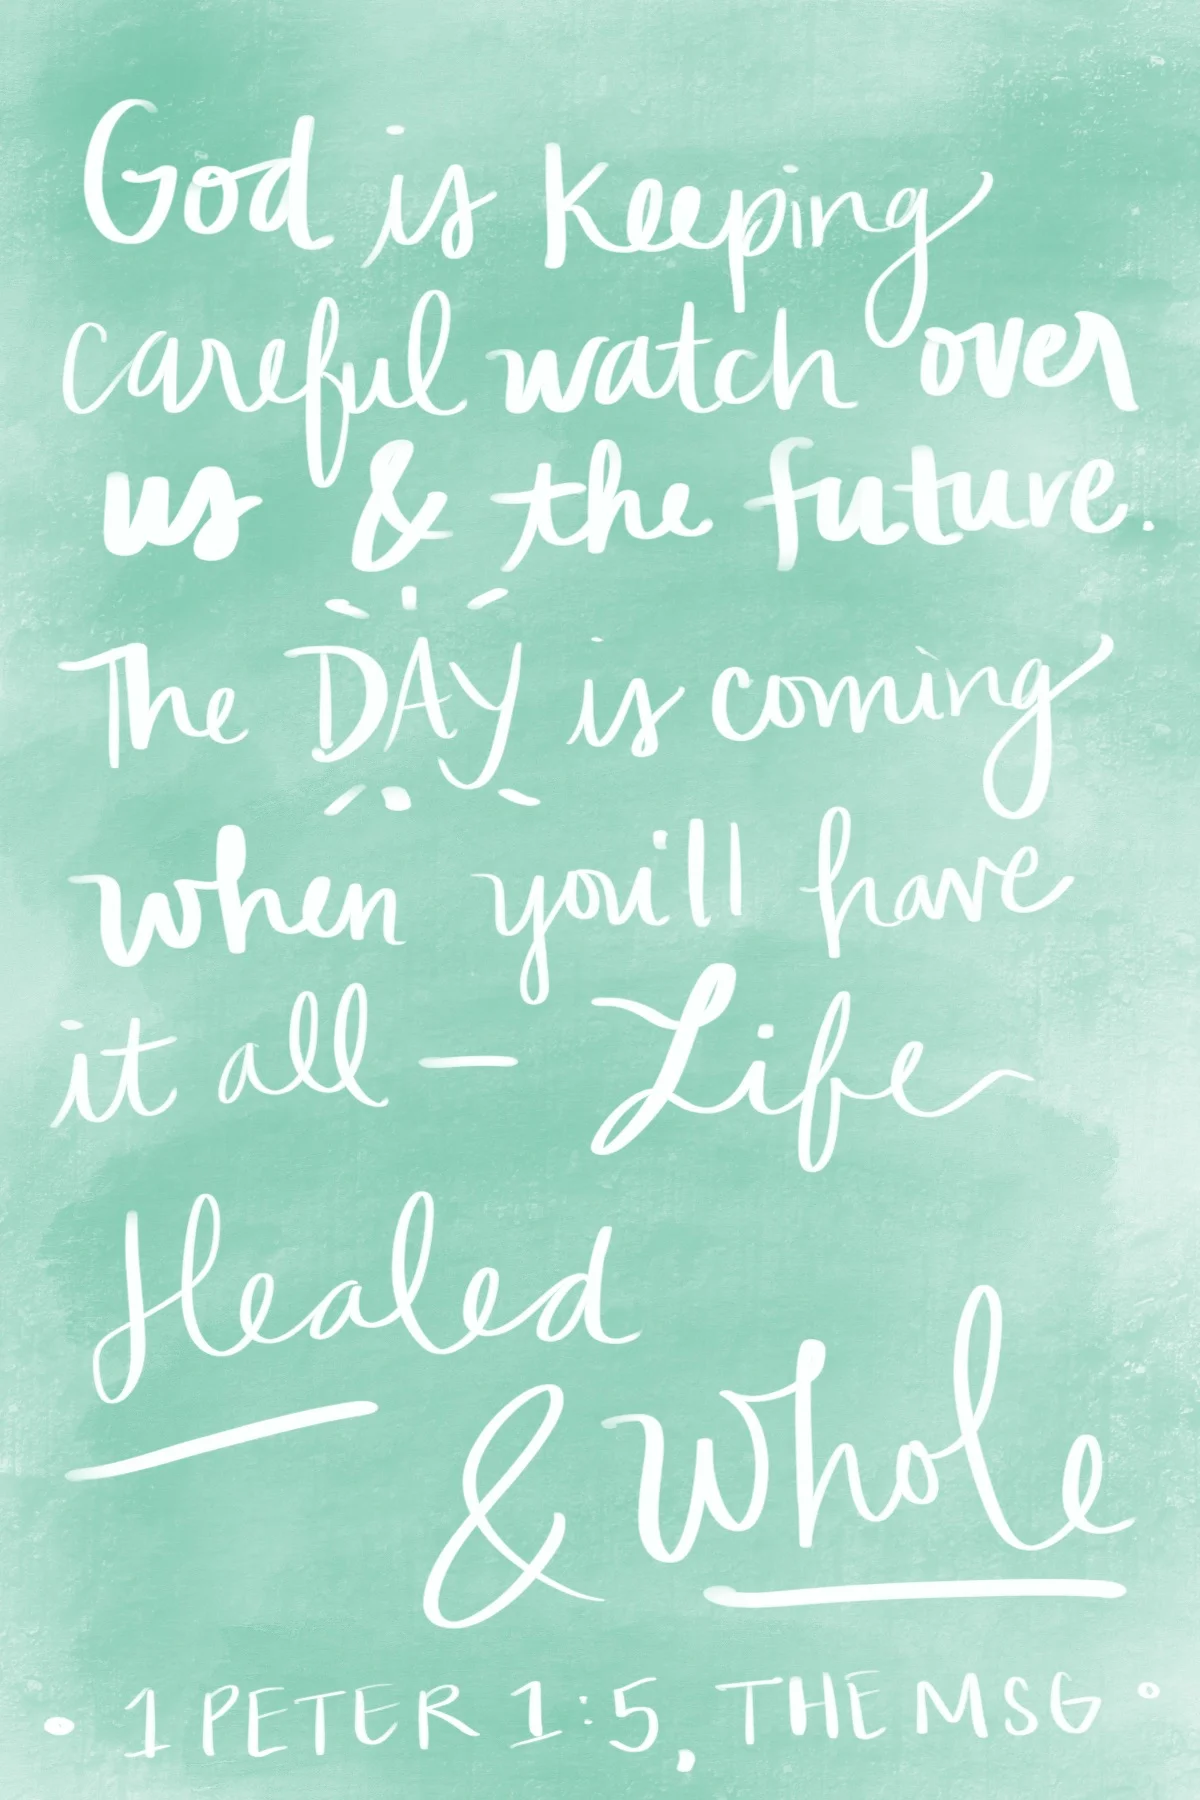 God is keeping
careful watch over
us & the future.
The DAY is coming
when you'll have
it all — Life
Healed
& Whole
• 1 PETER 1:5, THE MSG •